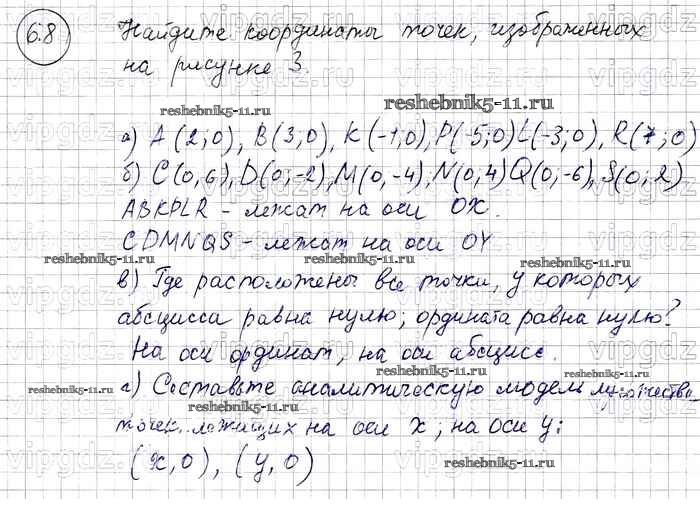 6.8 Найдите координаты точек, изображенных
на рисунке 3.
reshebnik5-11.ru reshebnik5-11.ru
а) A(2;0), B(3,0), K(-1,0), P(-5;0) L(-3;0), R(7;0)
б) C(0,6), D(0;-2), M(0,-4), N(0,4) Q(0,-6), S(0,2)
ABKPLR - лежат на оси OX.
CDMNQS - лежат на оси OY
reshebnik5-11.ru reshebnik5-11.ru
в) Где расположены все точки, у которых
абсцисса равна нулю; ордината равна нулю?
На оси ординат, на оси абсцисс.
reshebnik5-11.ru reshebnik5-11.ru
г) Составьте аналитическую модель множества
reshebnik5-11.ru
точек, лежащих на оси x; на оси y:
(x,0), (y,0)
reshebnik5-11.ru reshebnik5-11.ru